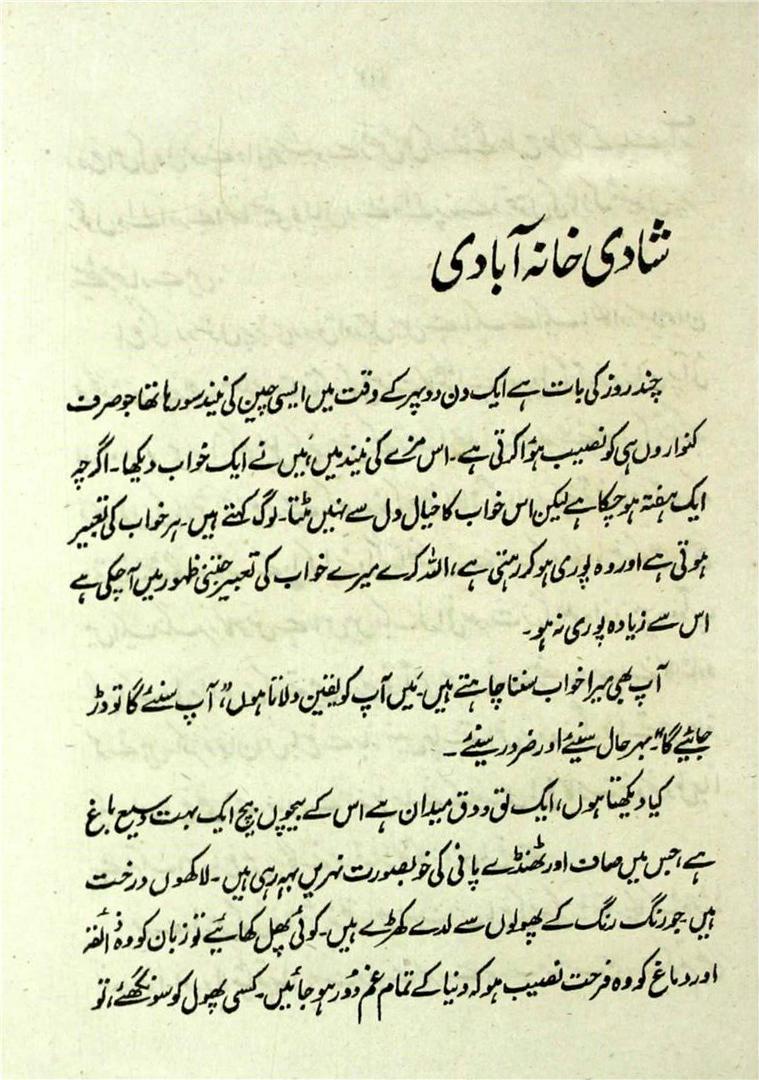 شادی خانہ آبادی
چند روز کی بات ہے ایک دن دوپہر کے وقت میں ایسی چین کی نیند سو رہا تھا جو صرف
کنواروں ہی کو نصیب ہؤا کرتی ہے۔ اس مزے کی نیند میں، مَیں نے ایک خواب دیکھا۔ اگرچہ
ایک ہفتہ ہو چکا ہے لیکن اس خواب کا خیال دل سے نہیں ہٹتا۔ لوگ کہتے ہیں۔ ہر خواب کی تعبیر
ہوتی ہے اور وہ پوری ہو کر رہتی ہے، اللہ کرے میرے خواب کی تعبیر جتنی ظہور میں آ چکی ہے
اس سے زیادہ پوری نہ ہو۔
آپ بھی میرا خواب سننا چاہتے ہیں۔ مَیں آپ کو یقین دلاتا ہوں، "آپ سنئے گا تو ڈر
جائیے گا"۔ بہرحال سنیئے اور ضرور سنیئے۔
کیا دیکھتا ہوں، ایک لق و دق میدان ہے اس کے بیچوں بیچ ایک بہت وسیع باغ
ہے، جس میں صاف اور ٹھنڈے پانی کی خوبصورت نہریں بہہ رہی ہیں۔ لاکھوں درخت
ہیں۔ جو رنگ رنگ کے پھولوں سے لدے کھڑے ہیں۔ کوئی پھل کھائیے تو زبان کو وہ ذائقہ
اور دماغ کو وہ فرحت نصیب ہو کہ دنیا کے تمام غم دُور ہو جائیں۔ کسی پھول کو سونگھئے، تو